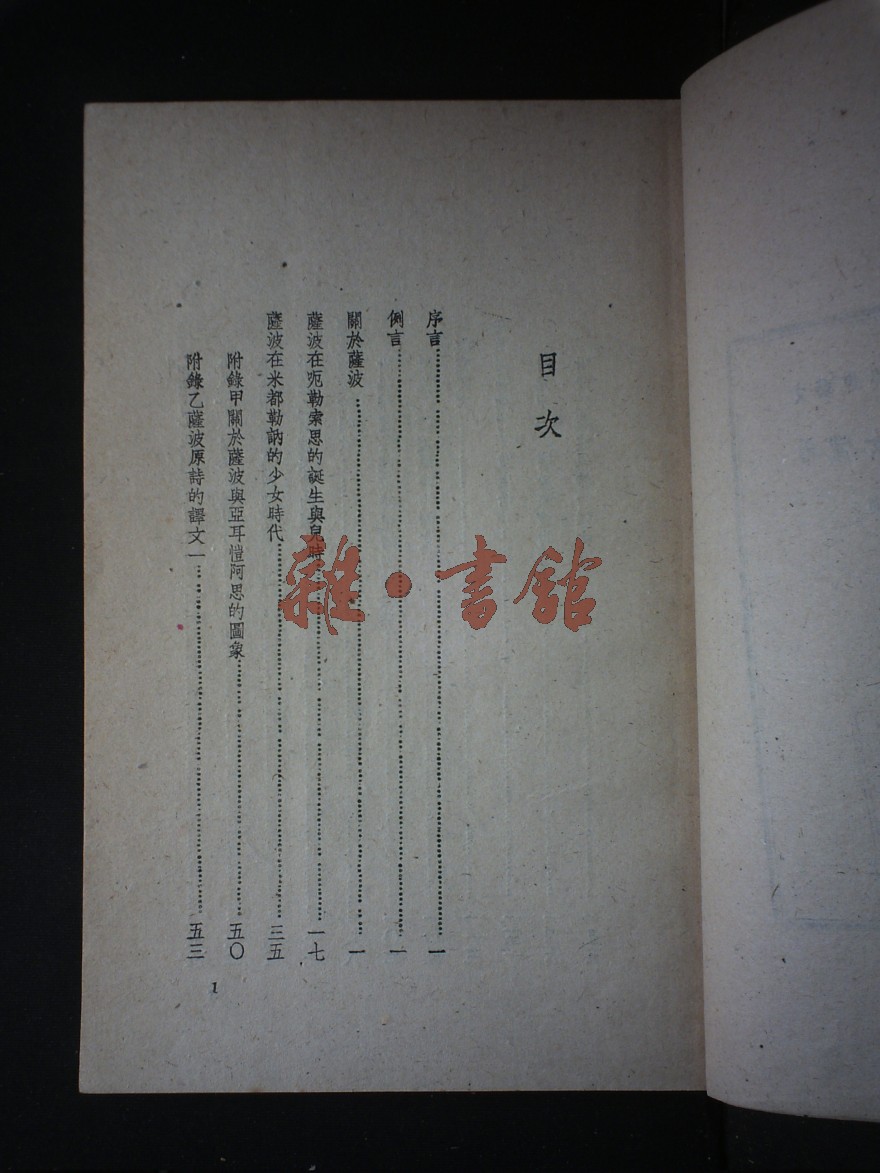 目次
序言…………一
例言…………一
關於薩波…………一
薩波在呃勒索思的誕生與兒時…………一七
薩波在米都勒訥的少女時代…………三五
附錄甲關於薩波與亞耳愷阿思的圖象…………五〇
附錄乙薩波原詩的譯文一…………五三
1
雜·書館